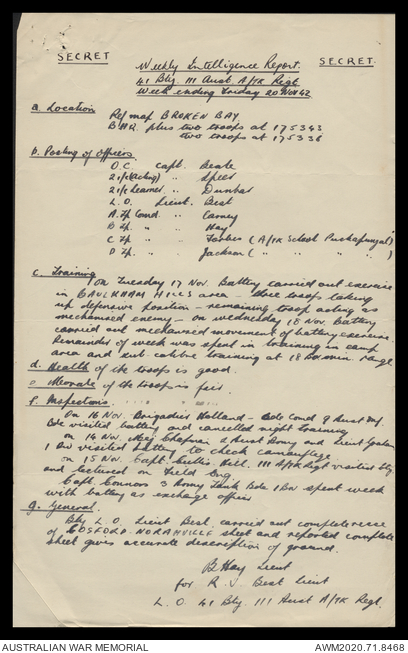 SECRET
SECRET.
Weekly Intelligence Report.
41 Bty. 111 Aust. A/TK Regt.
Week ending Friday 20 Nov 42
a. Location
Ref map BROKEN BAY
B.H.Q. plus two troops at 175343
two troops at 175338
b. Posting of Officers
O.C. Capt. Beale
2i/c (Acting) " Speer
2i/c Learner " Dunbar
L.O. Lieut. Best
A Tp Comd. " Carney
B Tp. " " Hay
C Tp " " Forbes (A/TK School Puckapunyal)
D Tp. " " Jackson ( " " " )
c. Training
On Tuesday 17 Nov. Battery carried out exercise
in BAULKHAM HILLS area - three troops taking
up defensive position - remaining troop acting as
mechanised enemy - on Wednesday 18 Nov. Battery
carried out mechanised movement of battery exercise.
Remainder of week was spent in training in camp
area and sub. calibre training at range
d. Health of the troops is good.
e. Morale of the troops is fair.
f. Inspections.
On 16 Nov. Brigadier Holland - Bde Comd 9 Aust Inf.
Bde visited battery and cancelled night training
on 14 Nov. Maj. Chapman 2 Aust Army and Lieut
1 Div visited battery to check camouflage
on 15 Nov. Capt. 111 A/TK Regt visited Bty
and lectured on Field Eng
Capt. Connors 3 Army Tank Bde 1 Bn spent week
with battery as exchange officer
g. General.
Bty L.O. Lieut Best carried out complete recce
of GOSFORD-NORAHVILLE sheet and reported complete
sheet gives accurate description of ground.
B Hay Lieut
for R. J. Best Lieut
L.O. 41 Bty. 111 Aust A/TK Regt.
AUSTRALIAN WAR MEMORIAL
AWM2020.71.8468